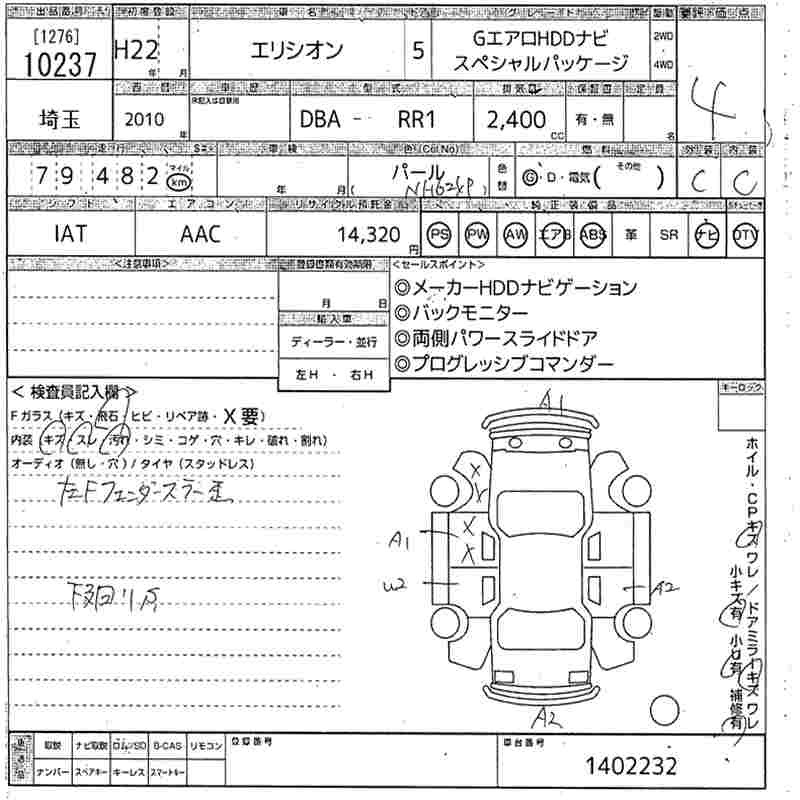 出品番号 初度登録 車名 ドア グレード 駆動 評価点
[1276]
10237 H22 年 月 エリシオン 5 GエアロHDDナビ スペシャルパッケージ 2WD 4WD 4
西暦 車歴 型式 排気量 保証書 定員
埼玉 2010 年 DBA - RR1 2,400 CC 有・無 名
走行 車検 色(Col No) 燃料 外装 内装
79482 マイル km 年 月 パール (NH624P) 色替 G・D・電気( その他 ) C C
シフト エアコン リサイクル預託金 純正装備品
IAT AAC 14,320 円 PS PW AW エアB ABS 革 SR ナビ DTV
<注意事項> 登録書類有効期限 <セールスポイント>
月 日
◎メーカーHDDナビゲーション
輸入車
◎バックモニター
ディーラー・並行
◎両側パワースライドドア
左H ・ 右H
◎プログレッシブコマンダー
<検査員記入欄> キーロック
Fガラス (キズ・飛石・ヒビ・リペア跡・X要)
内装 (キズ・スレ・汚れ・シミ・コゲ・穴・キレ・破れ・割れ)
オーディオ (無し・穴) / タイヤ (スタッドレス)
左Fフェンダーステー歪
下回リサ
A1
X
X
X
X
A1
U2
A2
A2
ホイル・CPキズワレ/ドアミラーキズワレ
小キズ有 小凹有 補修有
取説 ナビ取説 ロム/SD B-CAS リモコン 登録番号 車台番号
ナンバー スペアキー キーレス スマートキー 1402232